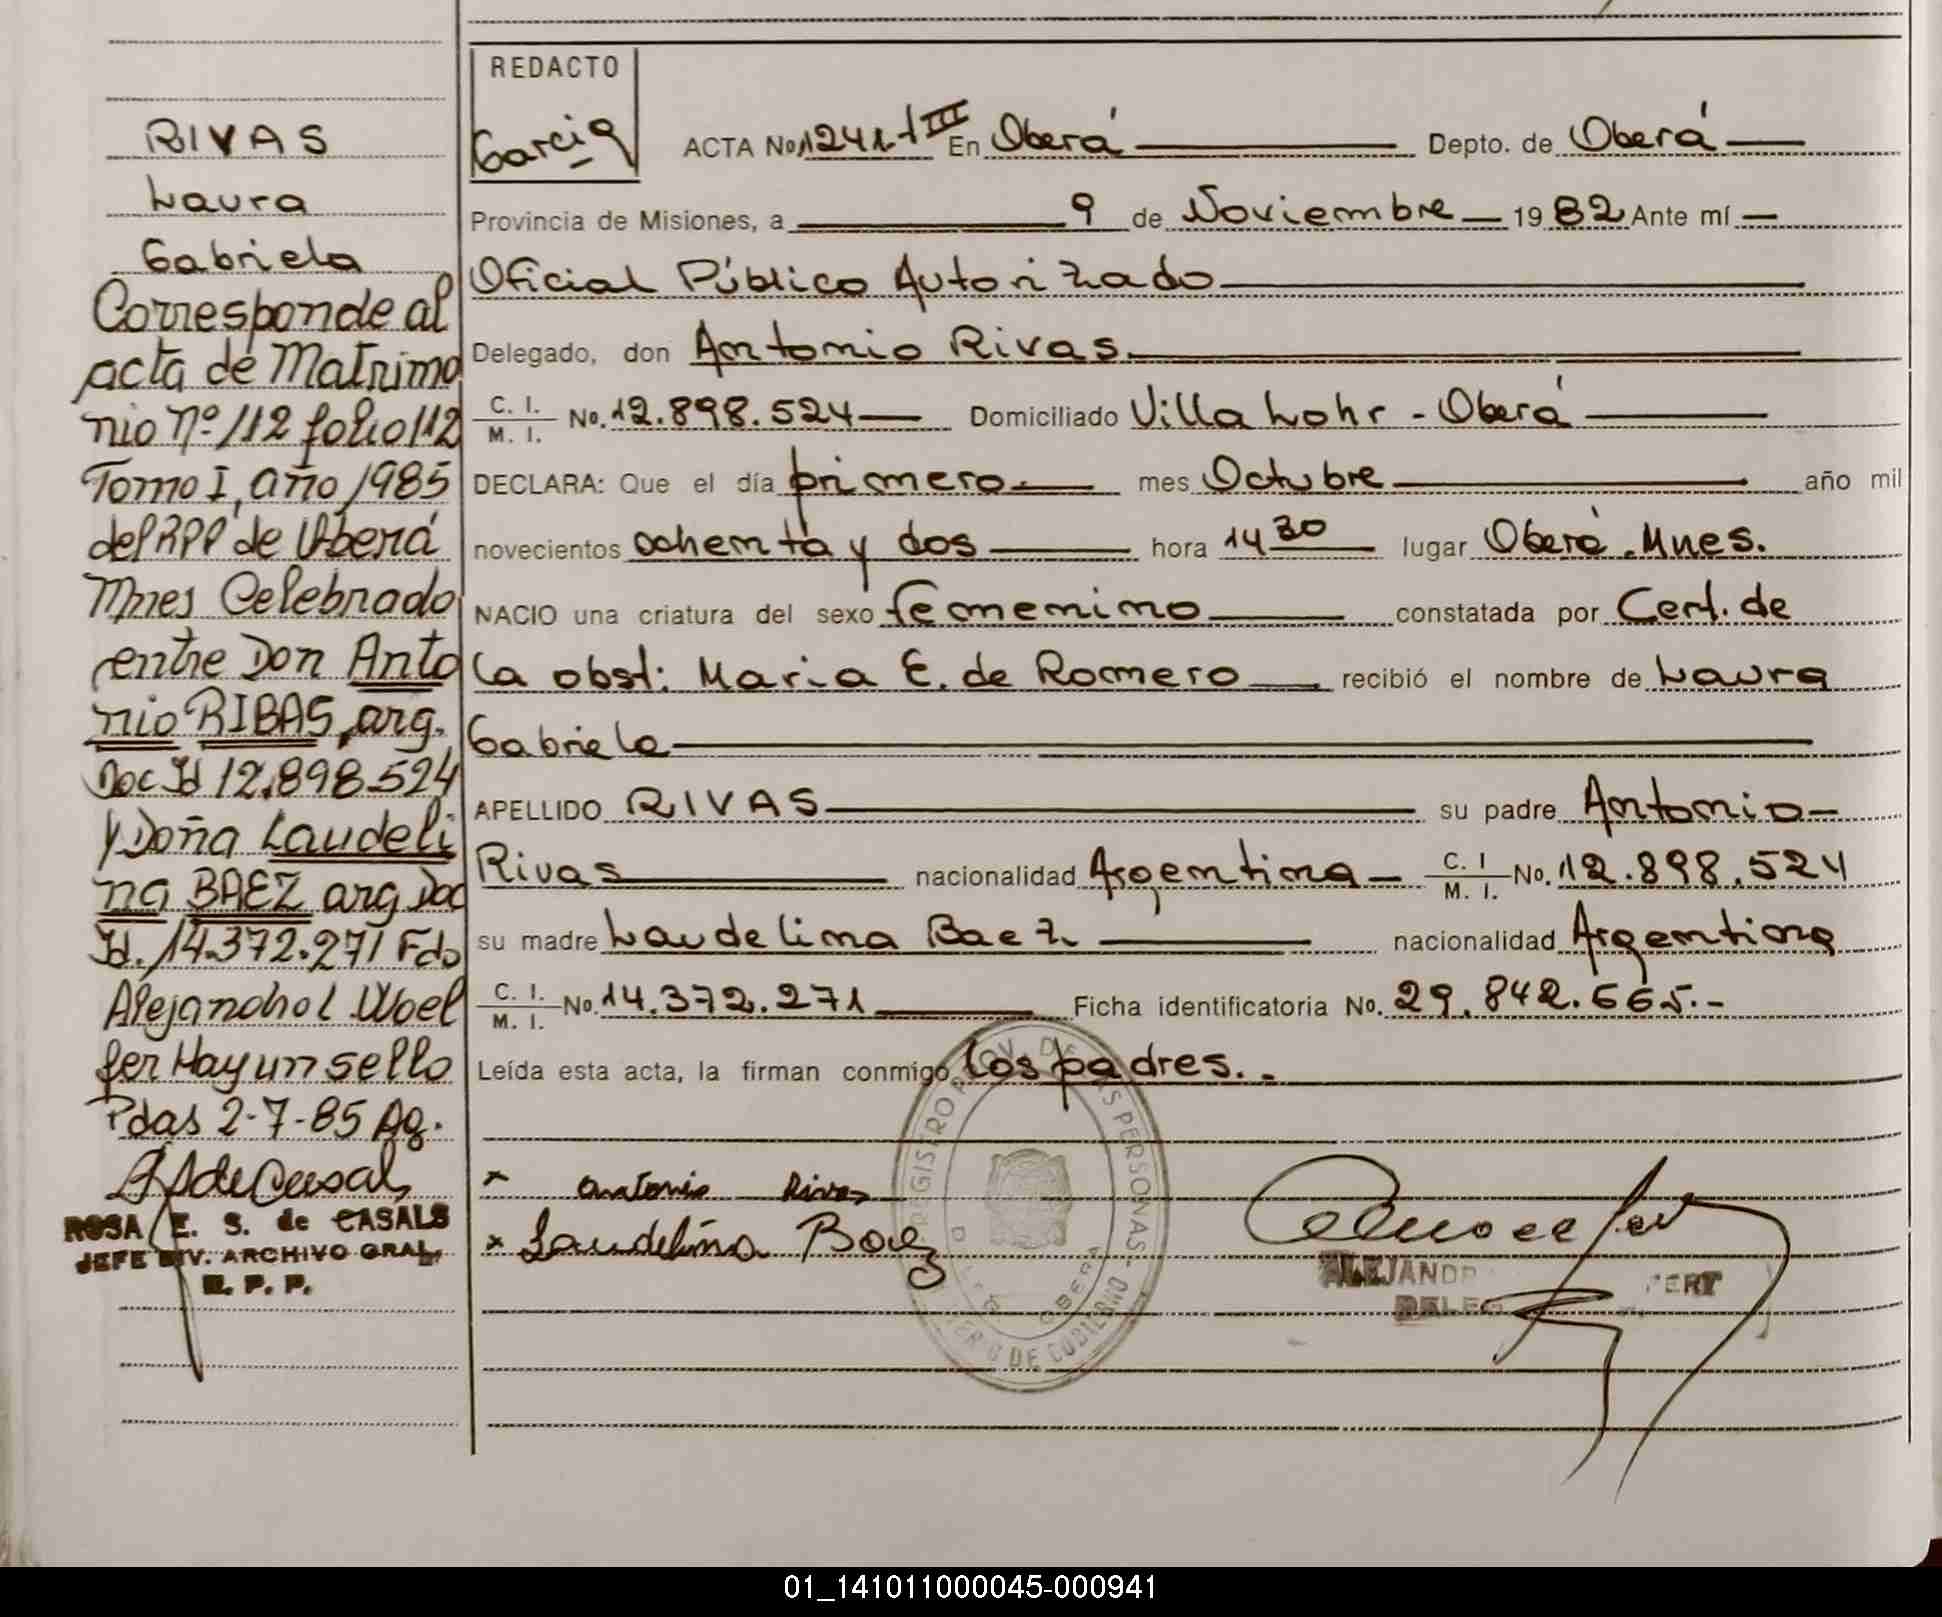 RIVAS
Laura
Gabriela
Corresponde al
acta de Matrimo
nio Nº 112 folio 112
Tomo I, año 1985
del RPP de Oberá
Mnes Celebrado
entre Don Anto
nio RIBAS, arg.
Doc Id 12.898.524
y Doña Laudeli
na BAEZ arg Doc
Id. 14.372.271 Fdo
Alejandro L Woel
fer Hay un sello
Pdas 2-7-85 Ag.
ROSA E. S. de CASALS
JEFE DIV. ARCHIVO GRAL.
R. P. P.
REDACTO
Garcia
ACTA No 1241 t III En Oberá Depto. de Oberá
Provincia de Misiones, a 9 de Noviembre 1982 Ante mí
Oficial Público Autorizado
Delegado, don Antonio Rivas
C. I. / M. I. No. 12.898.524 Domiciliado Villa Lohr - Oberá
DECLARA: Que el día primero mes Octubre año mil
novecientos ochenta y dos hora 14 30 lugar Oberá. Mnes.
NACIO una criatura del sexo femenino constatada por Cert. de
la obst: Maria E. de Romero recibió el nombre de Laura
Gabriela
APELLIDO RIVAS su padre Antonio
Rivas nacionalidad Argentina C. I / M. I. No. 12.898.524
su madre Laudelina Baez nacionalidad Argentina
C. I. / M. I. No. 14.372.271 Ficha identificatoria No. 29.842.665.-
Leída esta acta, la firman conmigo los padres.-
x Antonio Rivas
x Laudelina Baez
REGISTRO PROV. DE LAS PERSONAS
OBERA
DE GOBIERNO
ALEJANDR
01_141011000045-000941